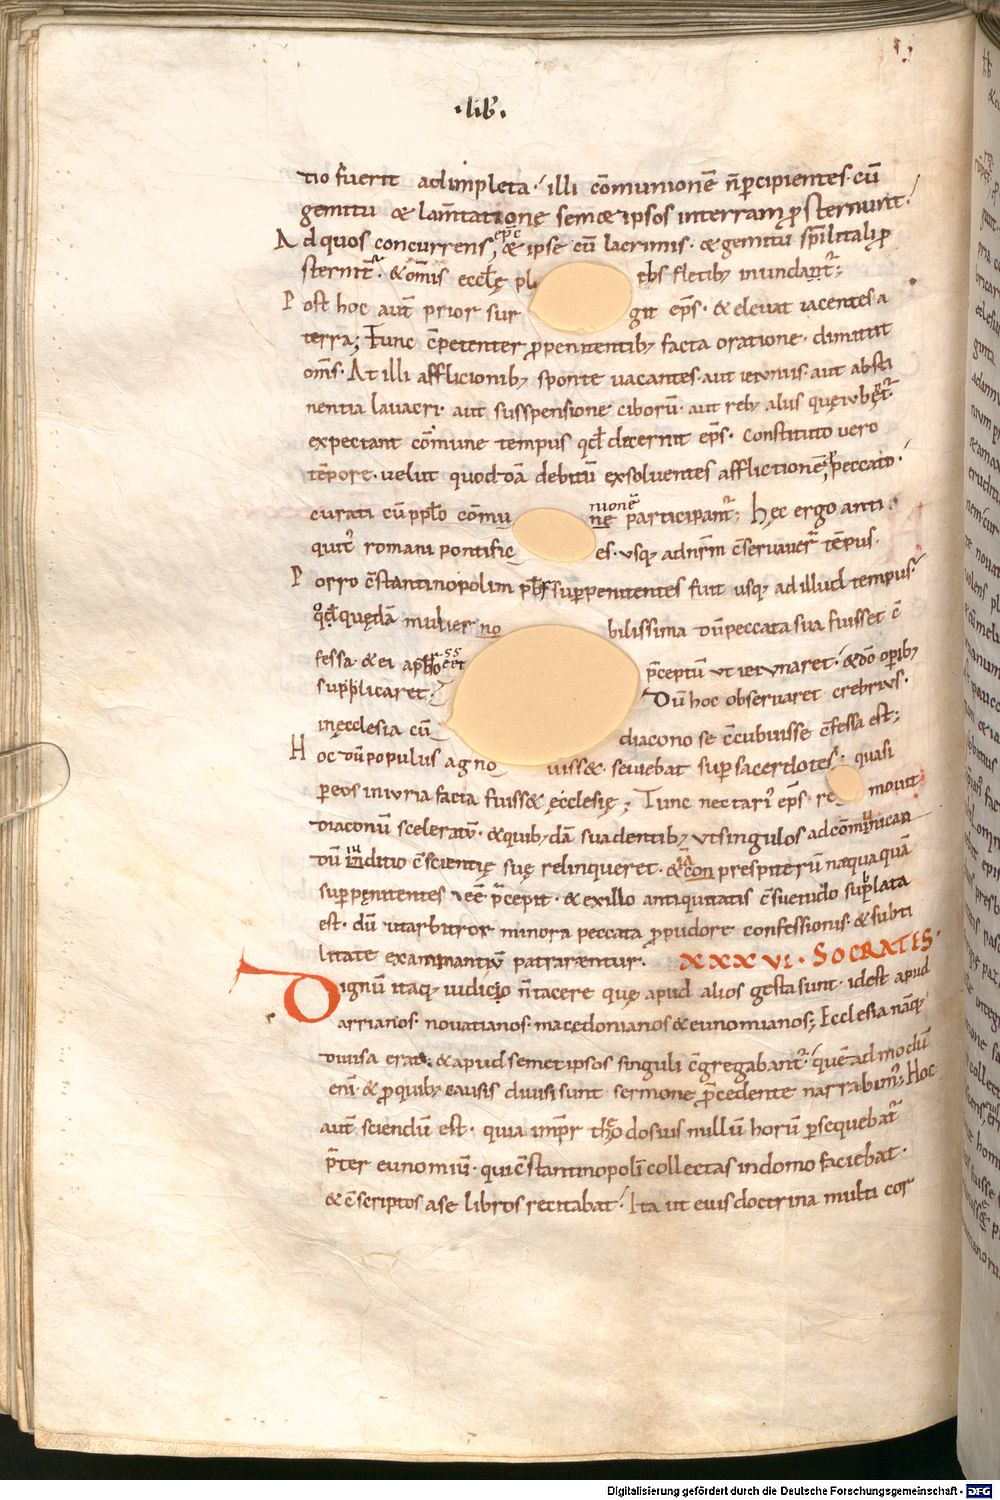 ·lib̅·
tio fuerit adimpleta·́ illi cōmunionē n̄ p̲cipientes· cū
gemitu & lam̄tatione semæ ipsos interram p̲sternunt·
Ad quos concurrens, ep̄c & ipse cū lacrimis· & gemitu sp̄ilitali p̲
sternit᷑· & om̄is eccl̄ę pl ebs fletib; inundan̄t᷑;
Post hoc aut̄ prior sur git ep̄s· & eleuat iacentes a
terra; Tunc c̄petenter p̲penitentib; facta oratione· dimittit
om̄s· At illi afflictionib; sponte uacantes· aut ieiuniis· aut absti
nentia lauacri· aut susspensione ciborū· aut reb; aliis quę iubēt᷑·
expectant cōmune tempus qd̄ decernit ep̄s· Constituto uero
tēpore· uelut quoddā debitū exsoluentes afflictionē, peccato·
curati cū pp̄lo cōmu nionē
ne participant᷑; Hęc ergo anti
quit᷑ romani pontific es· usq; ad nr̄m c̄seruauer̄ tēpus·
Porro c̄stantinopolim pb̄r sup̲ penitentes fuit usq; ad illud tempus·́
qd̄ quędā mulier no bilissima dū peccata sua fuisset c̄
fessa· & ei a pb̄ro p̄ceptū ut ieiunaret·́ & dō operib;
supplicaret·́ Dū hoc obseruaret crebrius·
in ęcclesia cū diacono se c̄cubuisse c̄fessa est;
Hoc dū populus agno uiss&· seuiebat sup̲ sacerdotes· quasi
p̲ eos iniuria facta fuiss& ęcclesię; Tunc nectari᷒ ep̄s re mouit
diaconū sceleratū· & quib;dā suadentib; ut singulos ad cōmunican
dū iuditio c̄scientię suę relinqueret· & n̄ con prespiterū naquaquā
sup̲ pęnitentes eē p̄cepit· & ex illo antiquitatis c̄suetudo sublata
est· dū ut arbitror minora peccata p̲ pudore confessionis· & subti
litate examinantiū patrarentur· XXXVI· SOCRATES·
Dignū itaq; iudicio n̄ tacere quę apud alios gesta sunt· idest apud
arrianos· nouatianos· macedonianos & eunomianos; Ecclesia nāq;
diuisa erat· & apud semetipsos singuli c̄gregabant᷑·́ quē ad modū
eni̅· & p̲ quib; causis diuisi sunt sermone p̄cedente narrabim᷒; Hoc
aut̄ sciendū est· quia imp̄r theodosius nullū horū p̲sequebat᷑
p̄ter eunomiū· qui c̄stantinopoli collectas in domo faciebat·
& c̄scriptos a se libros recitabat·́ Ita ut eius doctrina multi cor
Digitalisierung gefördert durch die Deutsche Forschungsgemeinschaft - DFG